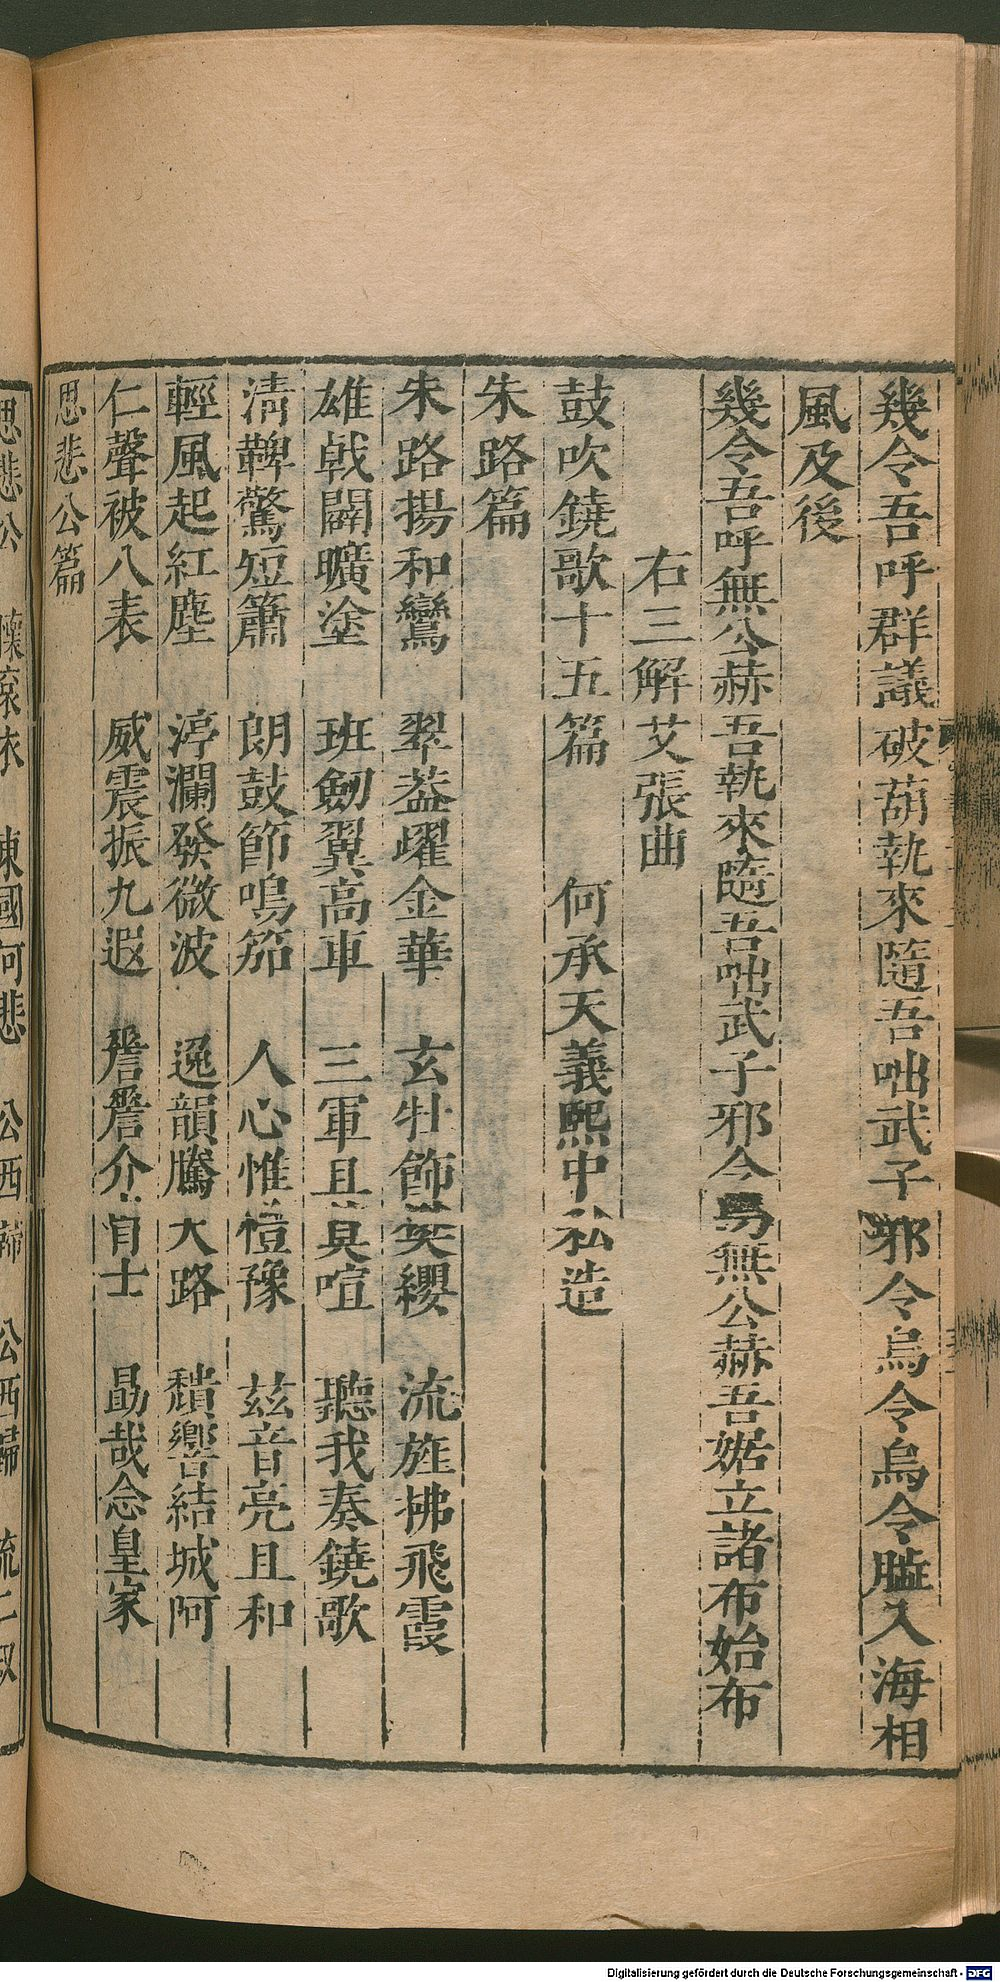 幾令吾呼群議破葫執來隨吾咄武子邪令烏令烏令臨入海相
風及後
幾令吾呼無公赫吾執來隨吾咄武子邪令烏無公赫吾婮立諸布始布
右三解艾張曲
鼓吹鐃歌十五篇 何承天義熙中私造
朱路篇
朱路揚和鸞 翠葢燿金華 玄牡飾樊纓 流旌拂飛霞
雄戟闢曠塗 班劒翼高車 三軍且莫喧 聽我奏鐃歌
清鞞驚短簫 朗鼓節鳴笳 人心惟愷豫 兹音亮且和
輕風起紅塵 渟瀾發微波 逸韻騰天路 穨響結城阿
仁聲被八表 威震振九遐 嶜嶜介胄士 勗哉念皇家
思悲公篇
思悲公 懷衮衣 東國何悲 公西歸 公西歸 流二叔
Digitalisierung gefördert durch die Deutsche Forschungsgemeinschaft - DFG